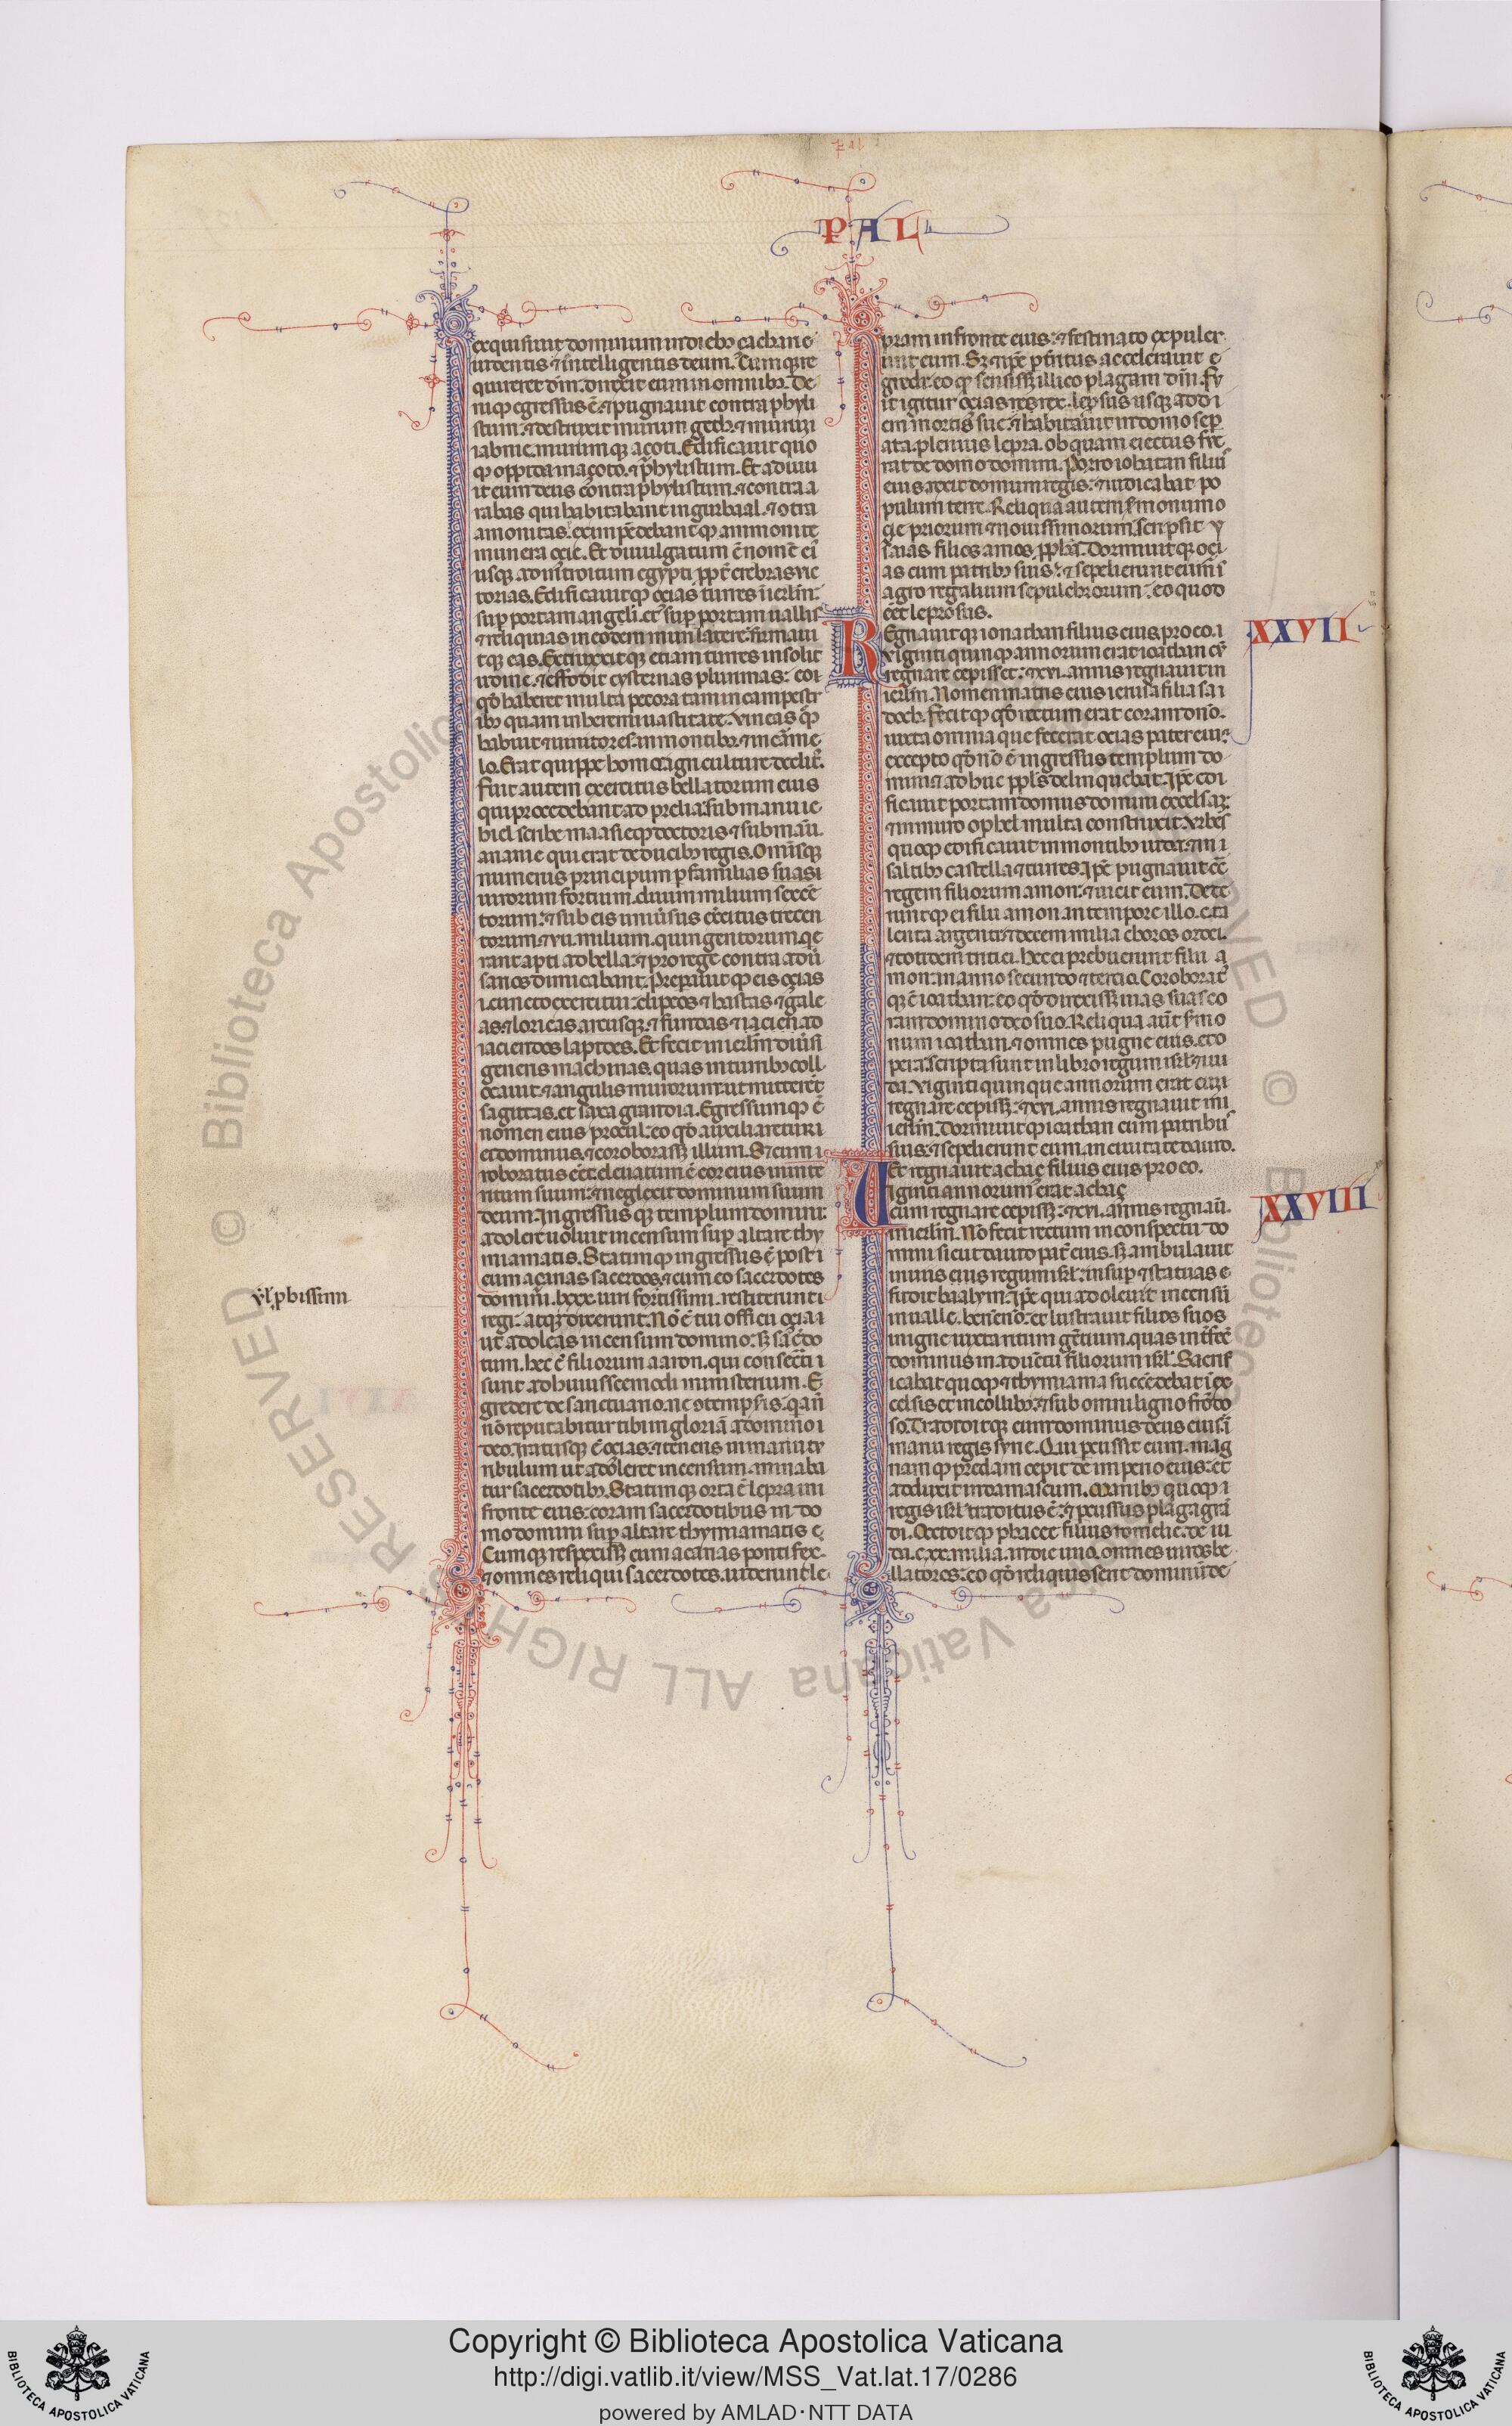 PAL
exquisiuit dominum in diebȝ zachari e
uidentis ⁊ intelligentis deum. Cumque re
quireret dn̄m. direxit eum in omnibȝ. De
niqȝ egressus ē ⁊ pugnauit contra phyli
stum. ⁊ destruxit murum geth. ⁊ murū
iabnie. murum qȝ azoti. Edificauit quo
qȝ oppida in azoto. ⁊ phylistum. Et adiuu
it eum deus contra phylistum. ⁊ contra a
rabas qui habitabant in gurbaal. ⁊ ɔtra
amonitas.
munera ozie. Et diuulgatum ē nomē ei
usqȝ ad introitum egypti ꝓpt̄ crebras vic
torias. Edificauitqȝ ozias turres ī ierlm̄.
sup̄ portam anguli. et sup̄ portam uallis
⁊ reliquas in eodem muri latere. firmaui
tqȝ eas. Extruxitqȝ etiam turres in solit
udine. ⁊ effodit cysternas plurimas: eo
qd̄ haberet multa pecora tam in campestr
ibȝ quam in heremi uastitate. vineas qȝ
habuit ⁊ uinitores in montibȝ. ⁊ in carme
lo. Erat quippe homo agriculture deditꝰ.
Fuit autem exercitus bellatorum eius
qui procedebant ad prelia. sub manu ie
hiel scribe maasieqȝ doctoris ⁊ sub manu
ananie qui erat de ducibȝ regis. Omnisqȝ
numerus principum ꝑ familias suas
uirorum fortium. duum milium sexcē
torum: ⁊ sub eis uniūsus exercitus trecen
torum ⁊ vii. milium. quingentorum. qe
rant apti ad bella: ⁊ pro rege contra aduer
sarios dimicabant. Preparauitqȝ eis ozias
i. cuncto exercitui: clipeos ⁊ hastas ⁊ gale
as. ⁊ loricas. arcusqȝ. ⁊ fundas
iaciendos lapides. Et fecit in ierlm̄ diuersi
generis machinas. quas in turribȝ coll
ocauit. ⁊ angulis murorum: ut mitterēt
sagittas. et saxa grandia. Egressumqȝ ē
nomen eius procul: eo qd̄ auxiliaretur
ei dominus. ⁊ coroborasset illum. Sȝ cum
roboratus eēt. eleuatum ē cor eius in inte
ritum suum: ⁊ neglexit dominum suum
deum. Ingressusqȝ templum domini:
adolere uoluit incensum sup̄ altare thy
miamatis. Statimqȝ ingressus ē post
eum azarias sacerdos. ⁊ cum eo sacerdotes
vl̓ ꝓbissimi
domini. lxxx. uiri fortissimi. restiterunt
regi: atqȝ dixerunt. Nō ē tui officii ozia
ut adoleas incensum domino: sȝ sacerdo
tum. hec ē filiorum aaron. qui consecrati
sunt ad huiusscemodi ministerium. E
gredere de sanctuario. ne ɔtempseris. qr̄
nō reputabitur tibi in gloriā a domino
deo. Iratusqȝ ē ozias. ⁊ tenens in manu tu
ribulum ut adoleret incensum. minaba
tur sacerdotibȝ. Statimqȝ orta ē lepra in
fronte eius: coram sacerdotibus in do
mo domini sup̄ altare thymiamatis
Cumqȝ respexisset eum azarias pontifex.
⁊ omnes reliqui sacerdotes. uiderunt le
pram in fronte eius: ⁊ festinato expuler
unt eum. Sȝ ⁊ ip̄e ꝑt̄ritus accelerauit e
gredi: eo qȝ sensisset illico plagam dn̄i. Fu
it igitur ozias rex leprosus usqȝ ad di
em mortis sue: ⁊ habitauit in domo sep
ata. plenus lepra. ob quam eiectus fue
rat de domo domini. Porro ioathan filiꝰ
eius rexit domum regis: ⁊ iudicabat po
pulum terre. Reliqua autem s̄monum o
zie priorum ⁊ nouissimorum: scripsit y
saias filius amos. ꝓpha. Dormiuitqȝ ozi
as cum patribȝ suis: ⁊ sepelierunt eum ī
agro regalium sepulchrorum: eo quod
eēt leprosus.
XXVII
Regnauitqȝ ionathan filius eius pro eo.
viginti quinqȝ annorum erat ioathan cū
regnare cepisset: ⁊ xvi. annis regnauit in
ierlm̄. Nomen matris eius ierusa filia sa
doch. Fecitqȝ qd̄ rectum erat coram dn̄o.
iuxta omnia que fecerat ozias pater eius:
excepto qd̄ nō ē ingressus templum do
mini. ⁊ adhuc ppl̄s delinquebat. Ip̄e edi
ficauit portam domus domini excelsaȝ:
⁊ in muro ophel multa construxit. Urbes
quoqȝ edificauit in montibȝ iuda. ⁊ in
saltibȝ castella ⁊ turres. Ip̄e pugnauit cō
regem filiorum amon: ⁊ uicit eum. Dede
runtqȝ ei filii amon in tempore illo. c. ta
lenta argenti: ⁊ decem milia choros ordei.
⁊ totidem tritici. hec ei prebuerunt filii a
mon: in anno secundo ⁊ tercio. Coroborat
qȝ ē ioathan: eo qd̄ direxisset uias suas co
ram domino deo suo. Reliqua aūt s̄mo
num ioathan. ⁊ omnes pugne eius. et o
pera: scripta sunt in libro regum isrl̄ ⁊ iu
da. Viginti quinque annorum erat cum
regnare cepisset: ⁊ xvi. annis regnauit in
ierlm̄. Dormiuitqȝ ioathan cum patribꝰ
suis: ⁊ sepelierunt eum. in ciuitate dauid.
Et regnauit achaz filius eius pro eo.
XXVIII
Viginti annorum erat achaz
cum regnare cepisset: ⁊ xvi. annis regnauit
in ierlm̄. Nō fecit rectum in conspectu do
mini sicut dauid pat̄ eius. sȝ ambulauit
in uiis eius regum isrl̄: insup̄ ⁊ statuas
fudit baalym. Ip̄e qui adoleuit incensū
in ualle. benēnō: et lustrauit filios suos
in igne iuxta ritum gētium. quas int̄fec̄
dominus in aduētu filiorum isrl̄. Sacrif
icabat quoqȝ ⁊ thymiama succēdebat ī ex
celsis et in collibȝ: ⁊ sub omni ligno frōdo
so. Tradiditqȝ eum dominus deus eius: ī
manu regis syrie. Qui percussit eum. mag
namqȝ predam cepit de imperio eius: et
adduxit in damascum. Manibȝ quoqȝ
regis isrl̄ traditus ē: ⁊ ꝑcussus plaga grā
di. Occiditqȝ phacee filius romelie. de iu
da. c. xx. milia. in die uno. omnes uiros be
llatores: eo qd̄ reliquissent dominū de
Copyright © Biblioteca Apostolica Vaticana
http://digi.vatlib.it/view/MSS_Vat.lat.17/0286
powered by AMLAD·NTT DATA
BIBLIOTECA APOSTOLICA VATICANA
BIBLIOTECA APOSTOLICA VATICANA
© Biblioteca Apostolica Vaticana ALL RIGHTS RESERVED